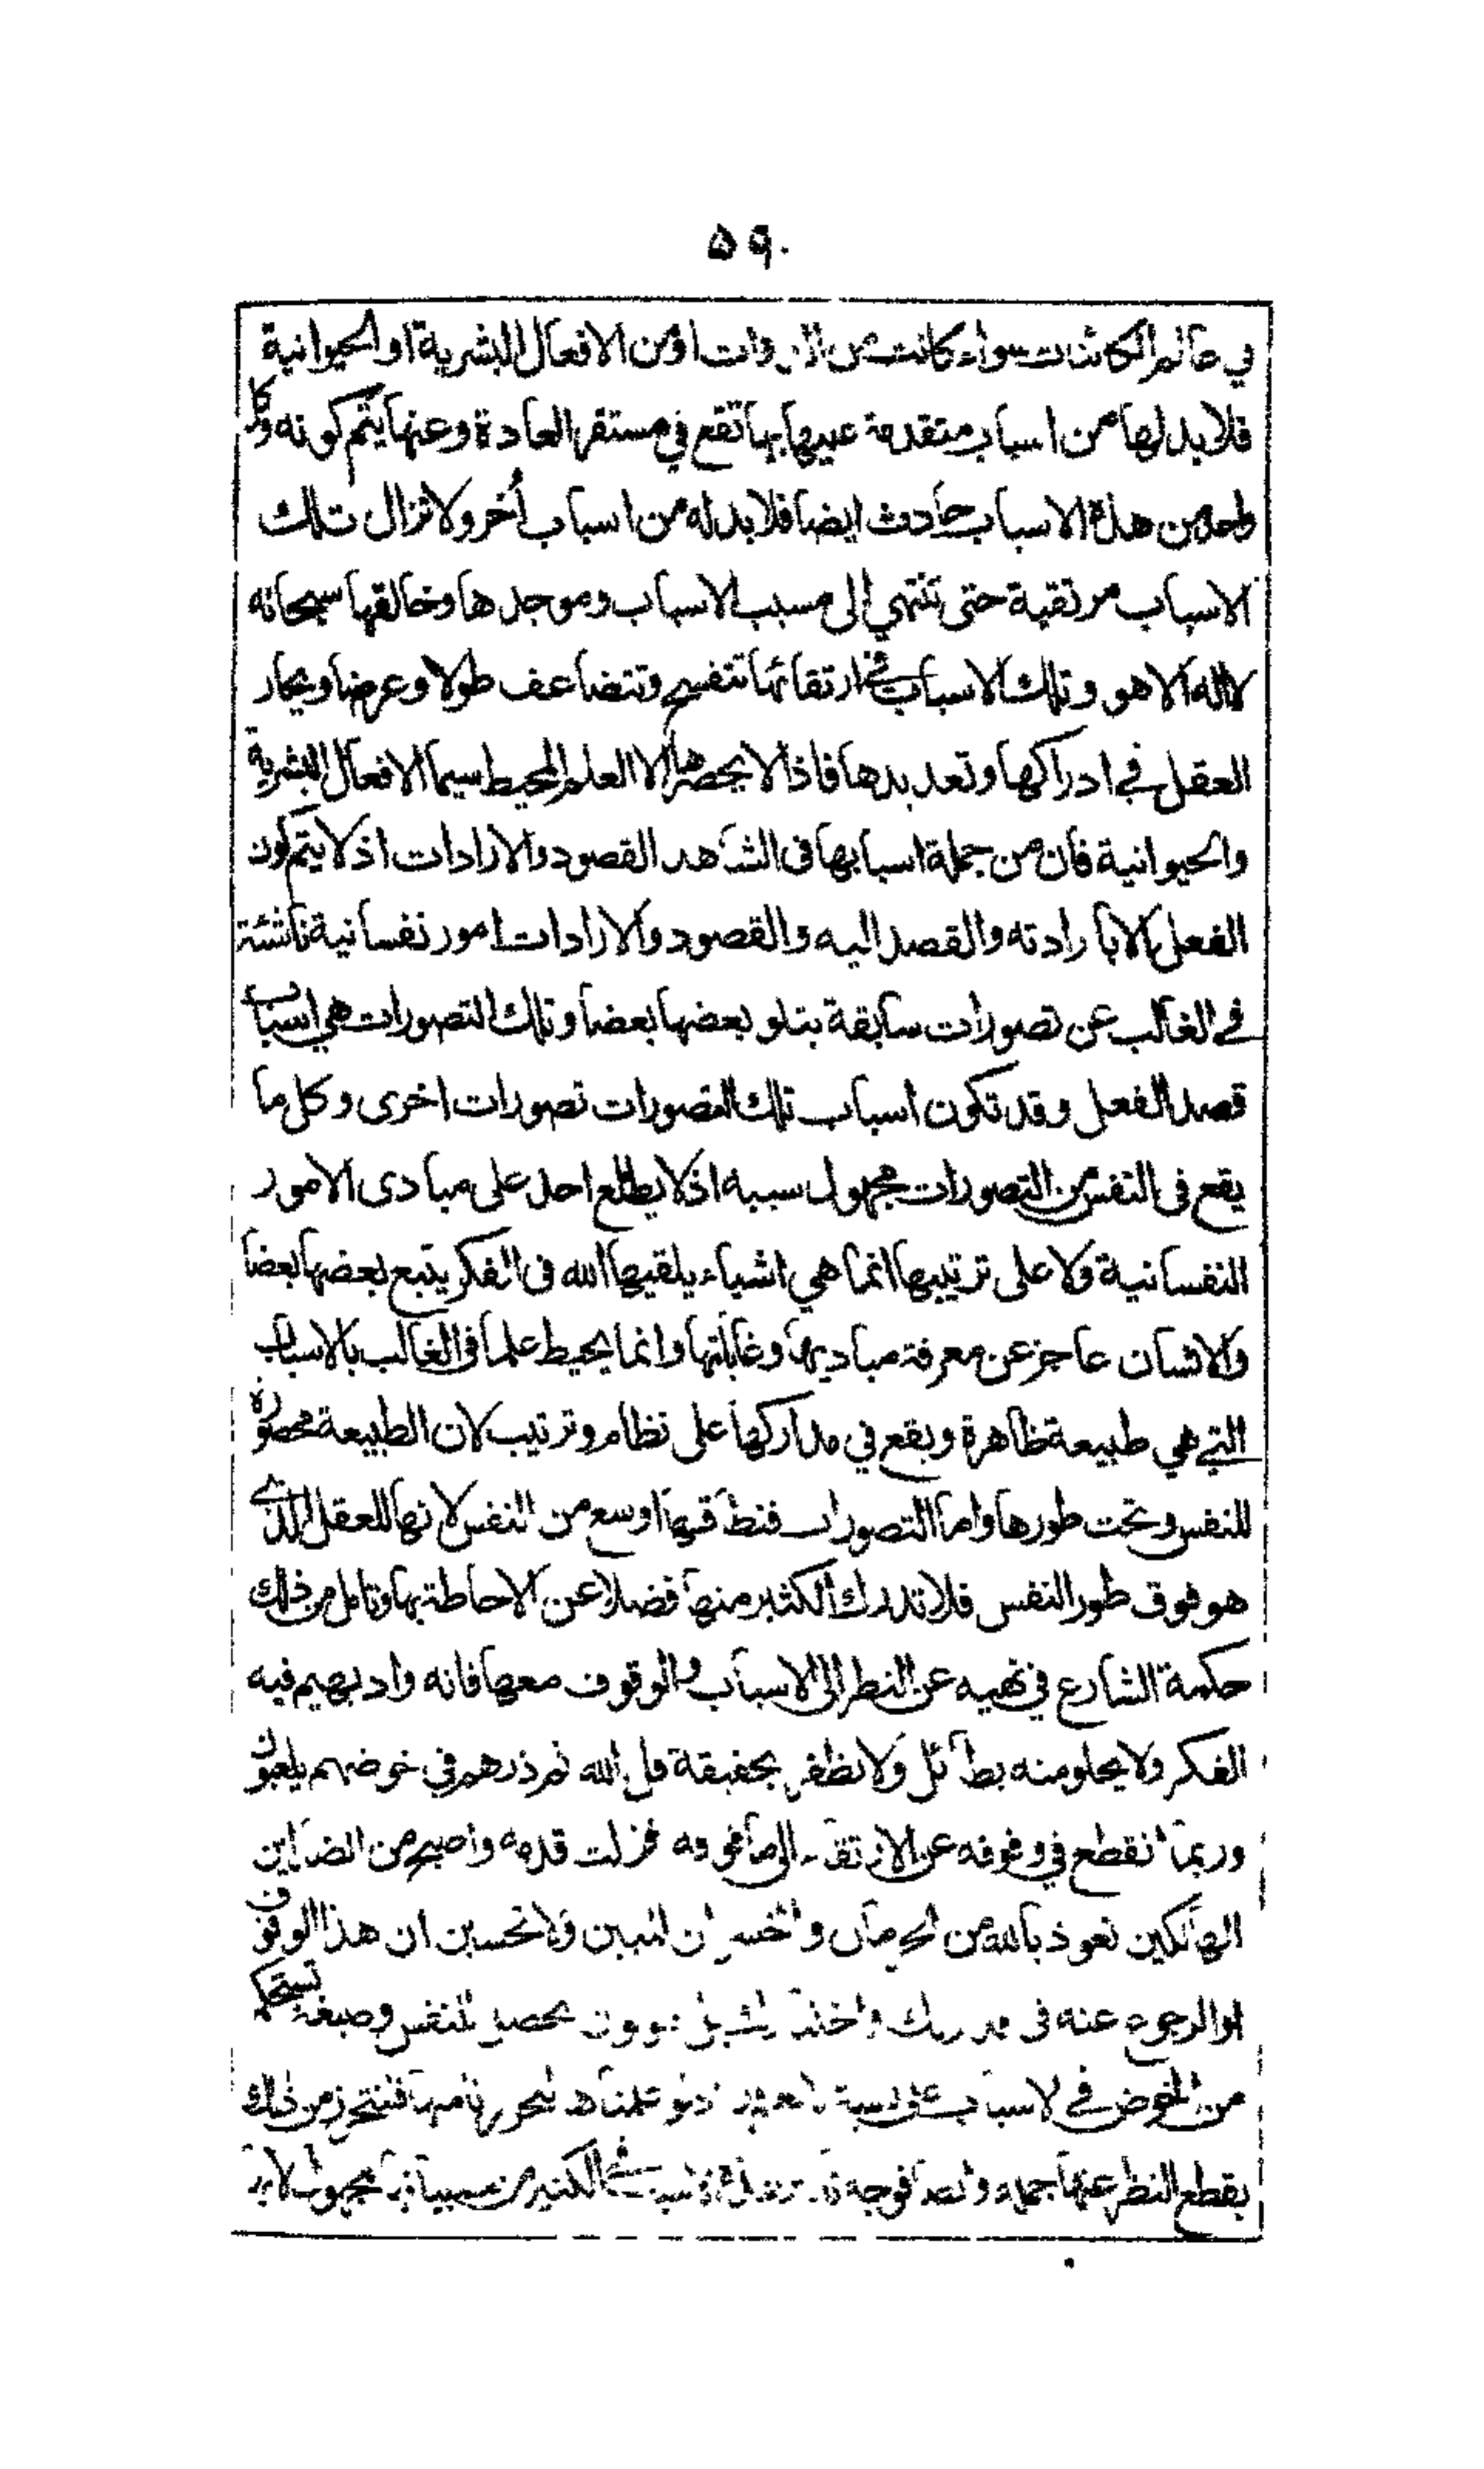 ٥٩٠
في عالم الكائنات سواء كانت من الذوات اومن الافعال البشرية او الحيوانية
فلا بد لها من اسباب متقدمة عليها بها تقع في مستقر العادة وعنها يتم كونه وكل
واحد من هذه الاسباب حادث ايضا فلا بد له من اسباب أخر ولا تزال تلك
الاسباب مرتقية حتى تنتهي إلى مسبب الاسباب وموجدها وخالقها سبحانه
لا اله الا هو وتلك الاسباب في ارتقائها تتفسح وتتضاعف طولا وعرضا ويحار
العقل في ادراكها وتعديدها فاذا لا يحصرها الا العلم المحيط سيما الافعال البشرية
والحيوانية فان من جملة اسبابها في الشاهد القصود والارادات اذ لا يتم كون
الفعل الا بارادته والقصد اليه والقصود والارادات امور نفسانية ناشئة
في الغالب عن تصورات سابقة يتلو بعضها بعضا وتلك التصورات هي اسباب
قصد الفعل وقد تكون اسباب تلك التصورات تصورات اخرى وكل ما
يقع في النفس من التصورات مجهول سببه اذ لا يطلع احد على مبادى الامور
النفسانية ولا على ترتيبها انما هي اشياء يلقيها الله في الفكر يتبع بعضها بعضا
والانسان عاجز عن معرفة مباديها وغاياتها وانما يحيط علما في الغالب بالاسباب
التي هي طبيعة ظاهرة ويقع في مداركها على نظام وترتيب لان الطبيعة محصورة
للنفس وتحت طورها واما التصورات فنطاقها اوسع من النفس لانها للعقل الذي
هو فوق طور النفس فلا تدرك الكثير منها فضلا عن الاحاطة بها وتامل من ذلك
حكمة الشارع في نهيه عن النظر الى الاسباب والوقوف معها فانه واد يهيم فيه
الفكر ولا يحلو منه بطائل ولا يظفر بحقيقة قل الله ثم ذرهم في خوضهم يلعبون
وربما انقطع في وقوفه عن الارتقاء الى ما فوقه فزلت قدمه واصبح من الضالين
الهالكين نعوذ بالله من الحرمان والخسران المبين ولا تحسبن ان هذا الوقوف
او الرجوع عنه في قدرتك واختيارك بل هو لون يحصل للنفس وصبغة تستحكم
من الخوض في الاسباب على نسبة لا نعلمها اذ لو علمناها لتحرزنا منها فلنتحرز من ذلك
بقطع النظر عنها جملة وايضا فوجه تاثير هذه الاسباب في الكثير من مسبباتها مجهول لانها